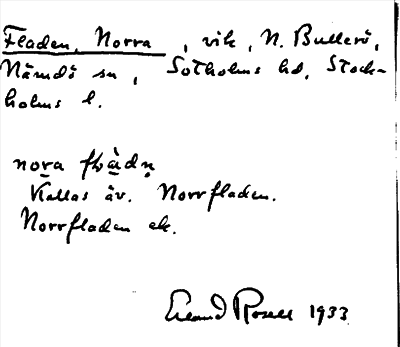 Fladen, Norra, vik, N. Bullerö,
Nämdö sn, Sotholms hd, Stock-
holms l.
nora
Kallas äv. Norrfladen.
Norrfladen ek.
Erland Rosell 1933